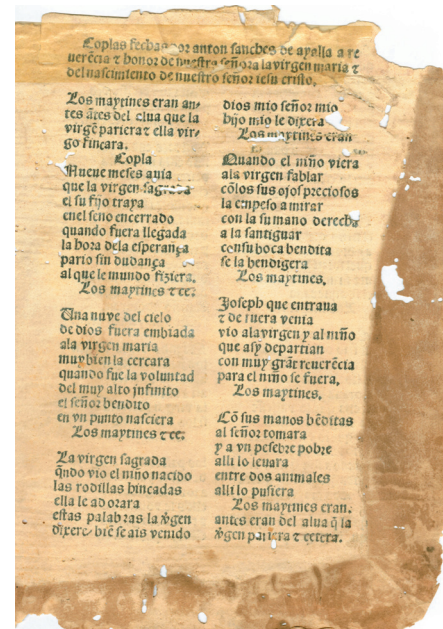 Coplas fechas por anton sanches de ayalla a re
uerēcia ⁊ honor de nuestra señora la virgen maria ⁊
del nascimiento de nuestro señor iesu cristo.
Los maytines eran an-
tes ãtes del alua que la
virgē pariera ⁊ ella vir-
go fincara.
Copla
Nueue meses auia
que la virgen sagrada
el su fijo traya
enel seno encerrado
quando fuera llegada
la hora dela esperança
pario sin dudança
al que le mundo fiziera.
Los maytines ⁊ cē.
Una nuve del cielo
de dios fuera embiada
ala virgen maria
muy bien la cercara
quando fue la voluntad
del muy alto jnfinito
el señor bendito
en vn punto nasciera
Los maytines ⁊ cē.
La virgen sagrada
q̃ndo vio el niño nacido
las rodillas hincadas
ella le adorara
estas palabras la v̄gen
dixere biē seais venido
dios mio señor mio
hijo mio le dixera
Los maytines eran
Quando el niño viera
ala virgen fablar
cōlos sus ojos preciosos
la empeso a mirar
con la su mano derecha
a la santiguar
con su boca bendita
se la bendigera
Los maytines.
Joseph que entraua
⁊ de fuera venia
vio ala virgen y al niño
que asy departian
con muy grāt reuerēcia
para el niño se fuera.
Los maytines.
Cō sus manos bēditas
al señor tomara
y a vn pesebre pobre
alli lo leuara
entre dos animales
alli lo pusiera
Los maytines eran.
antes eran del alua q̃ la
v̄gen pariera ⁊ cetera.